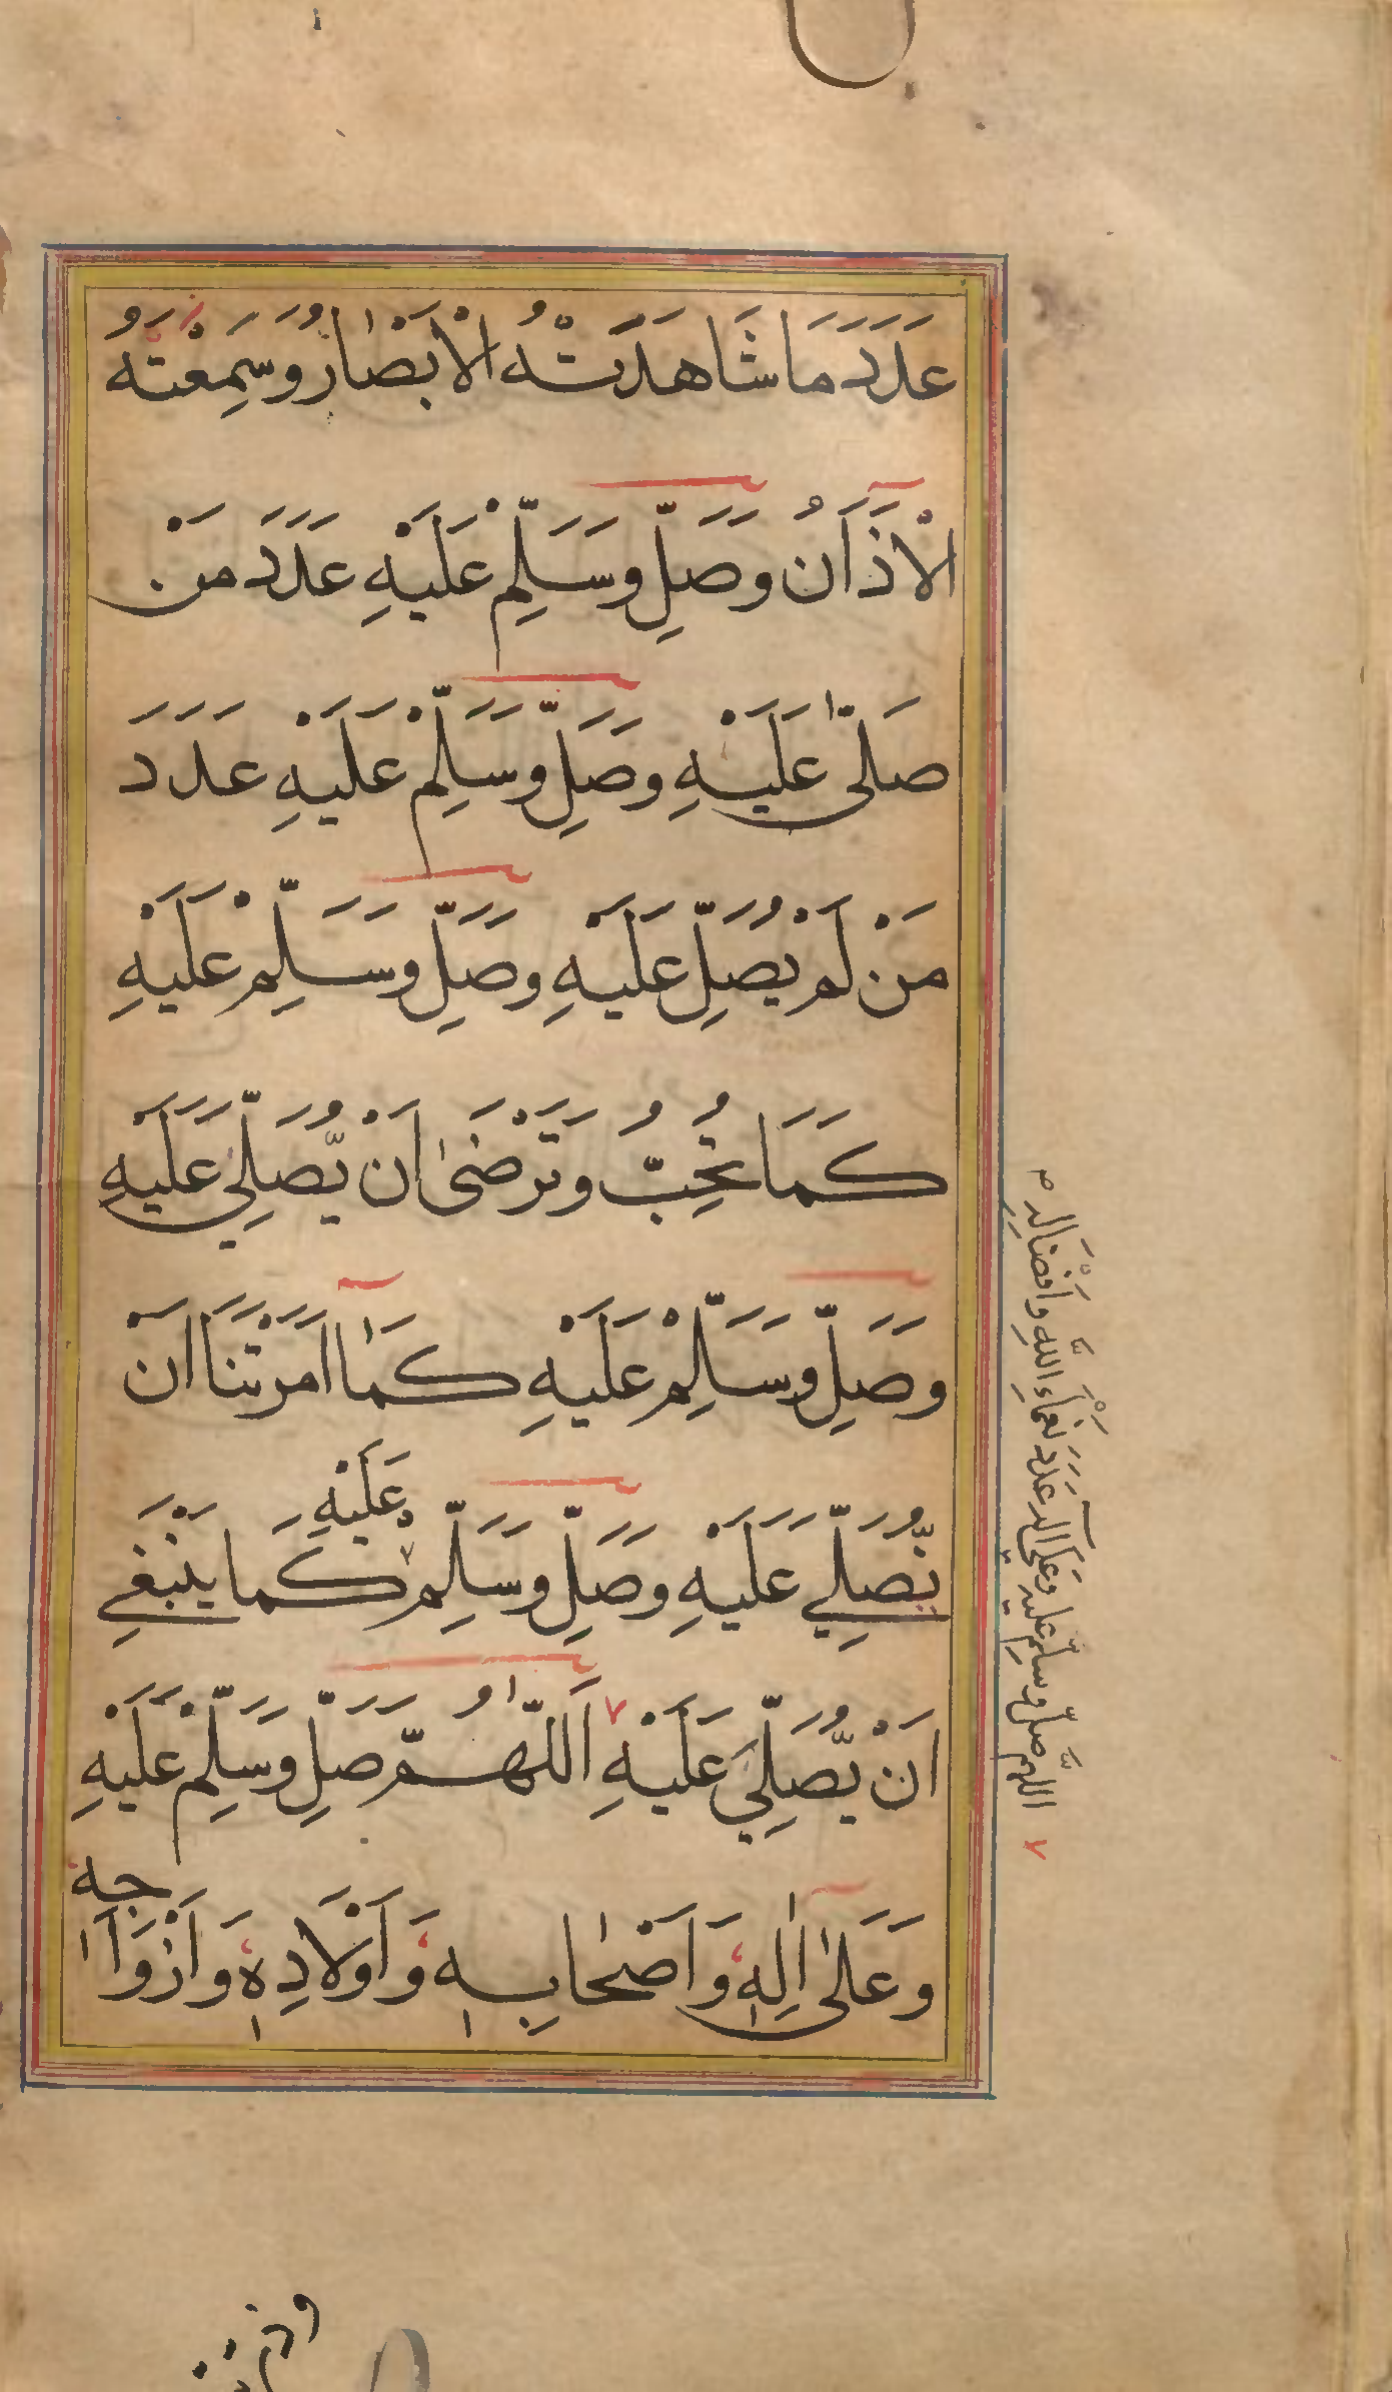 عَدَدَ مَا شَاهَدَتْهُ الْاَبْصَارُ وَسَمِعَتْهُ
الْاٰذَانُ وَصَلِّ وَسَلِّمْ عَلَيْهِ عَدَدَ مَنْ
صَلّٰى عَلَيْهِ وَصَلِّ وَسَلِّمْ عَلَيْهِ عَدَدَ
مَنْ لَمْ يُصَلِّ عَلَيْهِ وَصَلِّ وَسَلِّمْ عَلَيْهِ
كَمَا تُحِبُّ وَتَرْضَىٰ اَنْ يُّصَلِّيَ عَلَيْهِ
وَصَلِّ وَسَلِّمْ عَلَيْهِ كَمَآ اَمَرْتَنَا اَنْ
نُّصَلِّيَ عَلَيْهِ وَصَلِّ وَسَلِّمْ عَلَيْهِ كَمَا يَنْبَغِي
اَنْ يُّصَلِّيَ عَلَيْهِ اَللّٰهُمَّ صَلِّ وَسَلِّمْ عَلَيْهِ
وَعَلٰى اٰلِهٖ وَاَصْحَابِهٖ وَاَوْلَادِهٖ وَاَزْوَاجِهٖ
اللهم صلّ وسلّم عليه وعلى آله عَدَدَ نَعْمَاءِ اللّٰهِ وَاِفْضَالِهِ